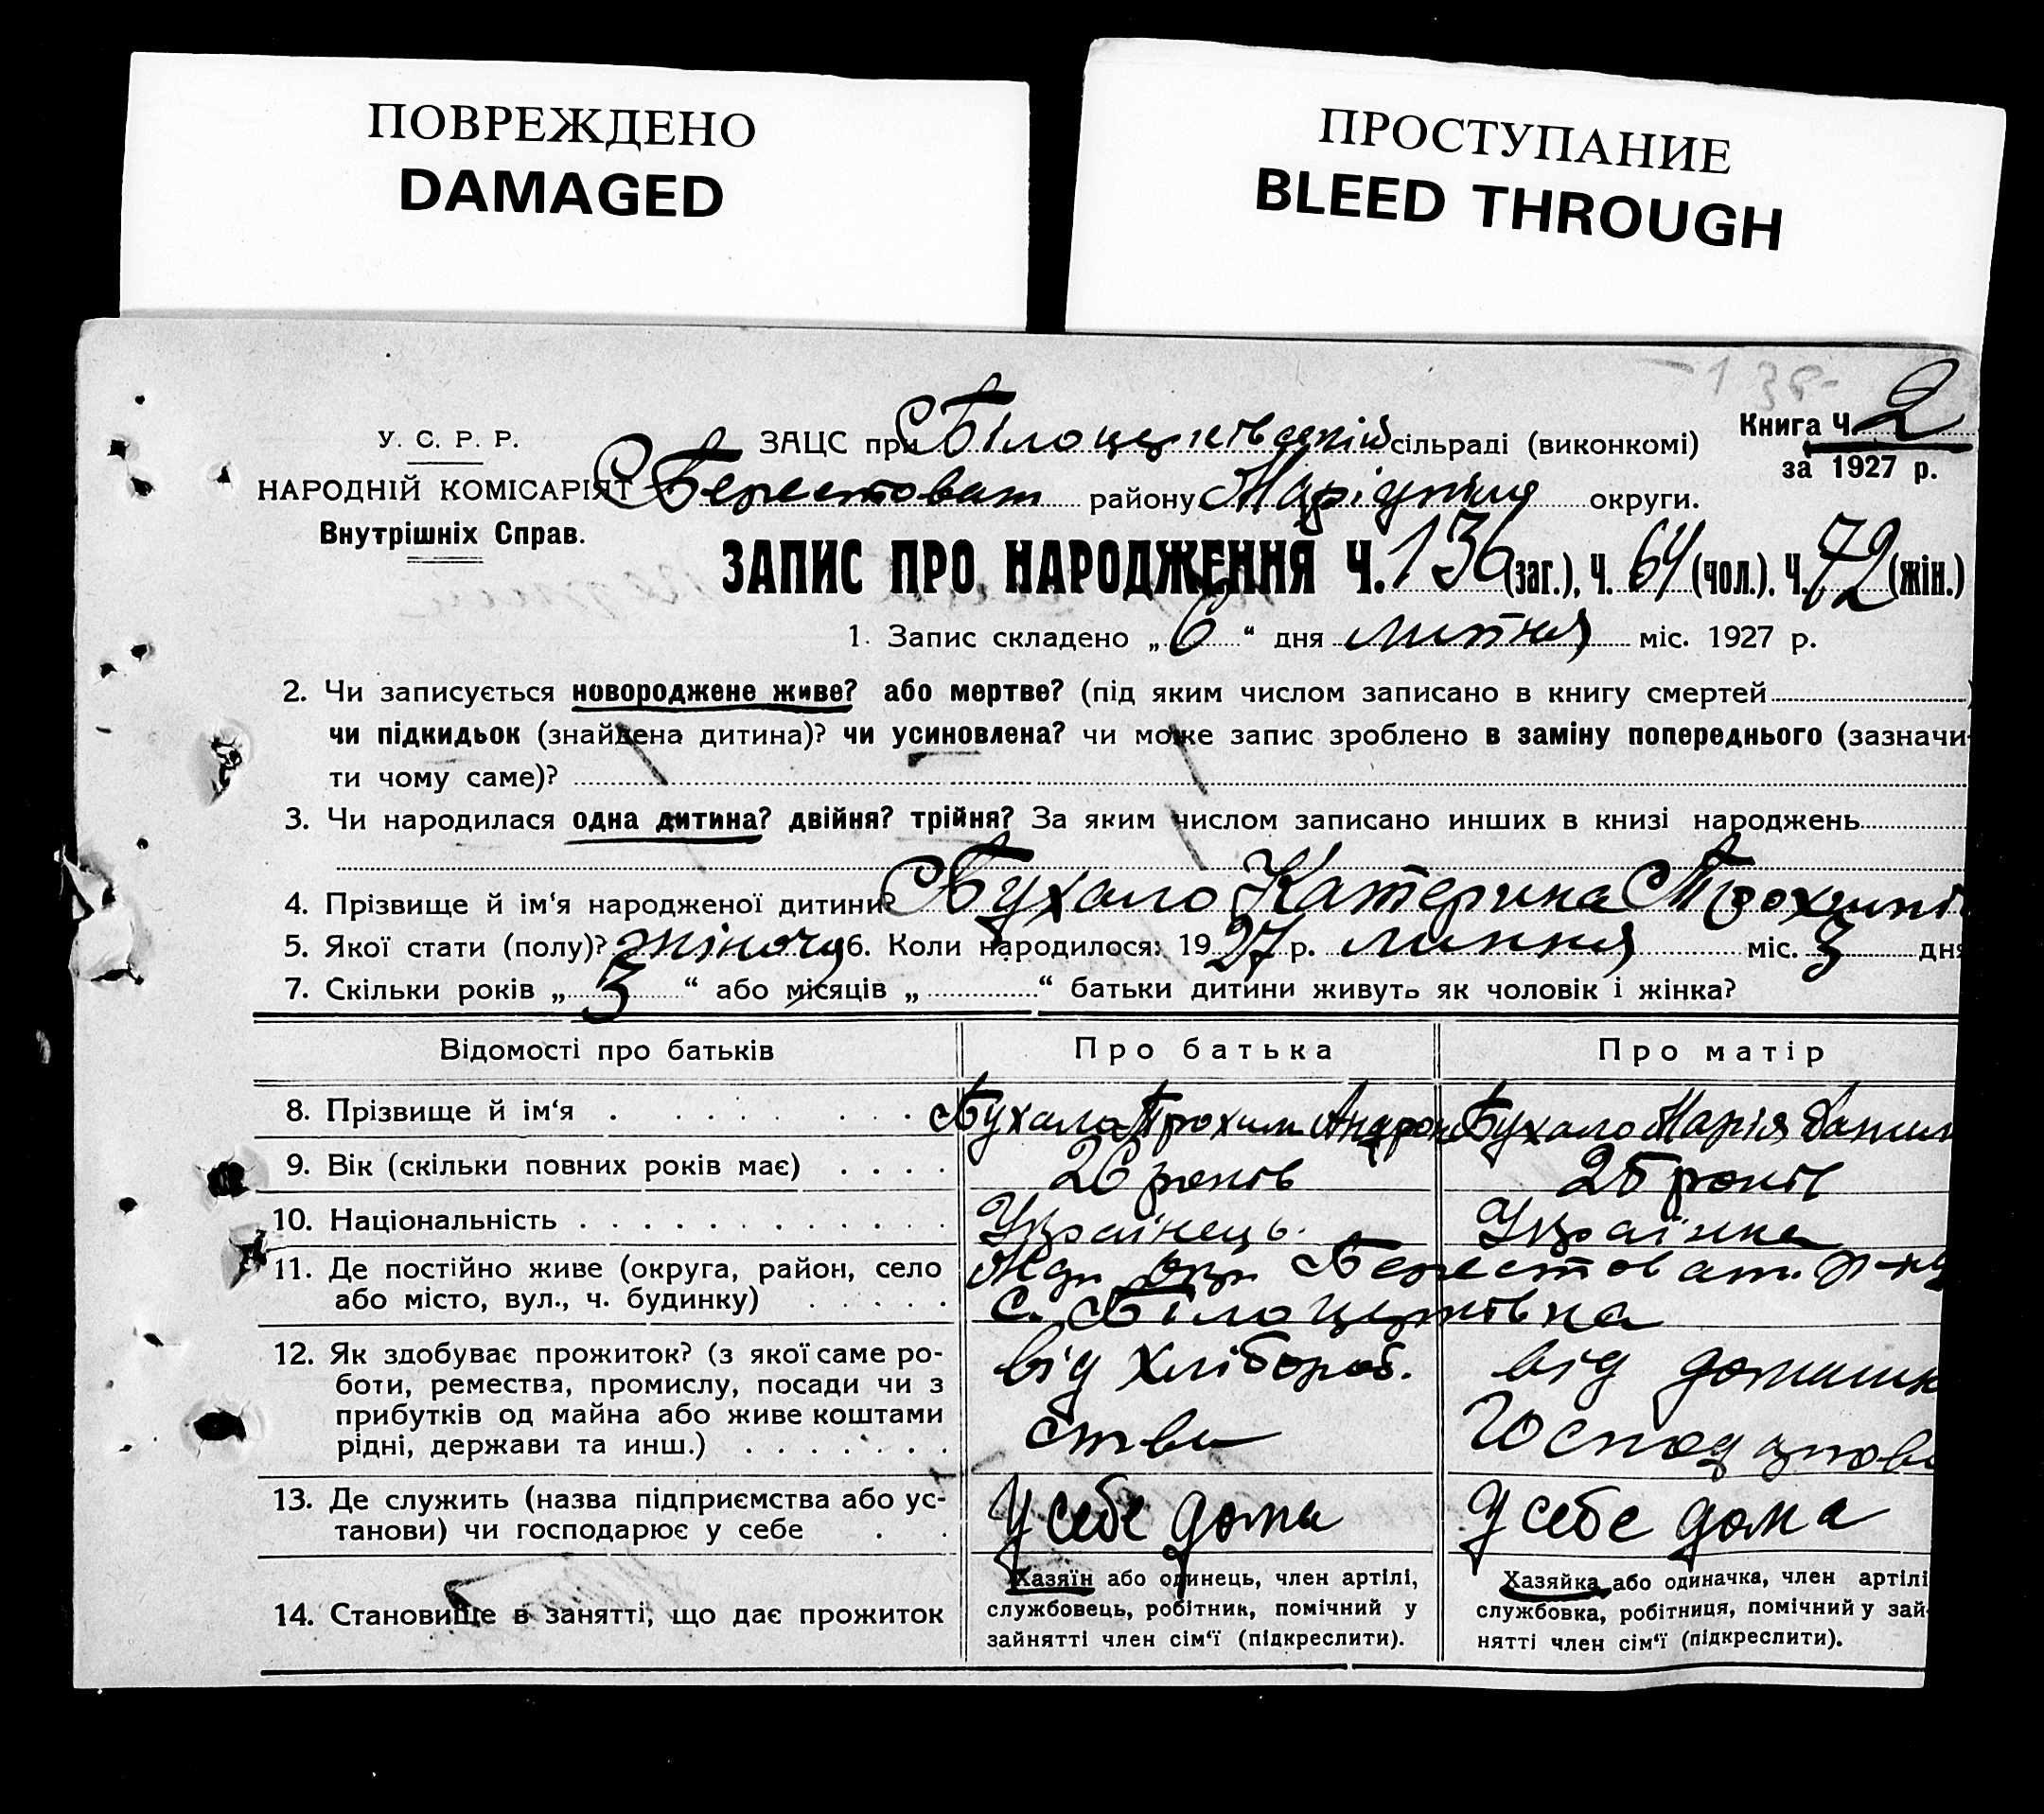 ПОВРЕЖДЕНО
DAMAGED
ПРОСТУПАНИЕ
BLEED THROUGH
Книга Ч. 2
за 1927 р.
У. С. Р. Р.
НАРОДНІЙ КОМІСАРІЯТ
Внутрішніх Справ.
ЗАЦС при Білоцерківській сільраді (виконкомі)
Берестоват району Маріупіль округи.
ЗАПИС ПРО НАРОДЖЕННЯ Ч. 136 (заг.), Ч. 64 (чол.). Ч. 72 (жін.)
1. Запис складено „ 6 “ дня липня міс. 1927 р.
2. Чи записується новороджене живе? або мертве? (під яким числом записано в книгу смертей )
чи підкидьок (знайдена дитина)? чи усиновлена? чи може запис зроблено в заміну попереднього (зазначи-
ти чому саме)?
3. Чи народилася одна дитина? двійня? трійня? За яким числом записано инших в книзі народжень
4. Прізвище й ім‘я народженої дитини? Бухало Катерина Трохимів
5. Якої стати (полу)? жіночу 6. Коли народилося: 1927 р. липня міс. 3 дня
7. Скільки років „ 3 “ або місяців „ “ батьки дитини живуть як чоловік і жінка?
Відомості про батьків Про батька Про матір
8. Прізвище й ім‘я Бухало Трохим Андрон Бухало Марія Данил
9. Вік (скільки повних років має) 26 років 25 років
10. Національність Українець. Українка
11. Де постійно живе (округа, район, село Берестоват. р-ну
або місто, вул., ч. будинку) с. Білоцерківка
12. Як здобуває прожиток? (з якої саме ро- від хлібороб. від домашн
боти, ремества, промислу, посади чи з
прибутків од майна або живе коштами ства
рідні, держави та инш.)
13. Де служить (назва підприємства або ус- У себе дома У себе дома
танови) чи господарює у себе
14. Становище в занятті, що дає прожиток
Хазяїн або одинець, член артілі,
службовець, робітник, помічний у
зайнятті член сім‘ї (підкреслити).
Хазяйка або одиначка, член артілі
службовка, робітниця, помічний у зай-
нятті член сім‘ї (підкреслити).